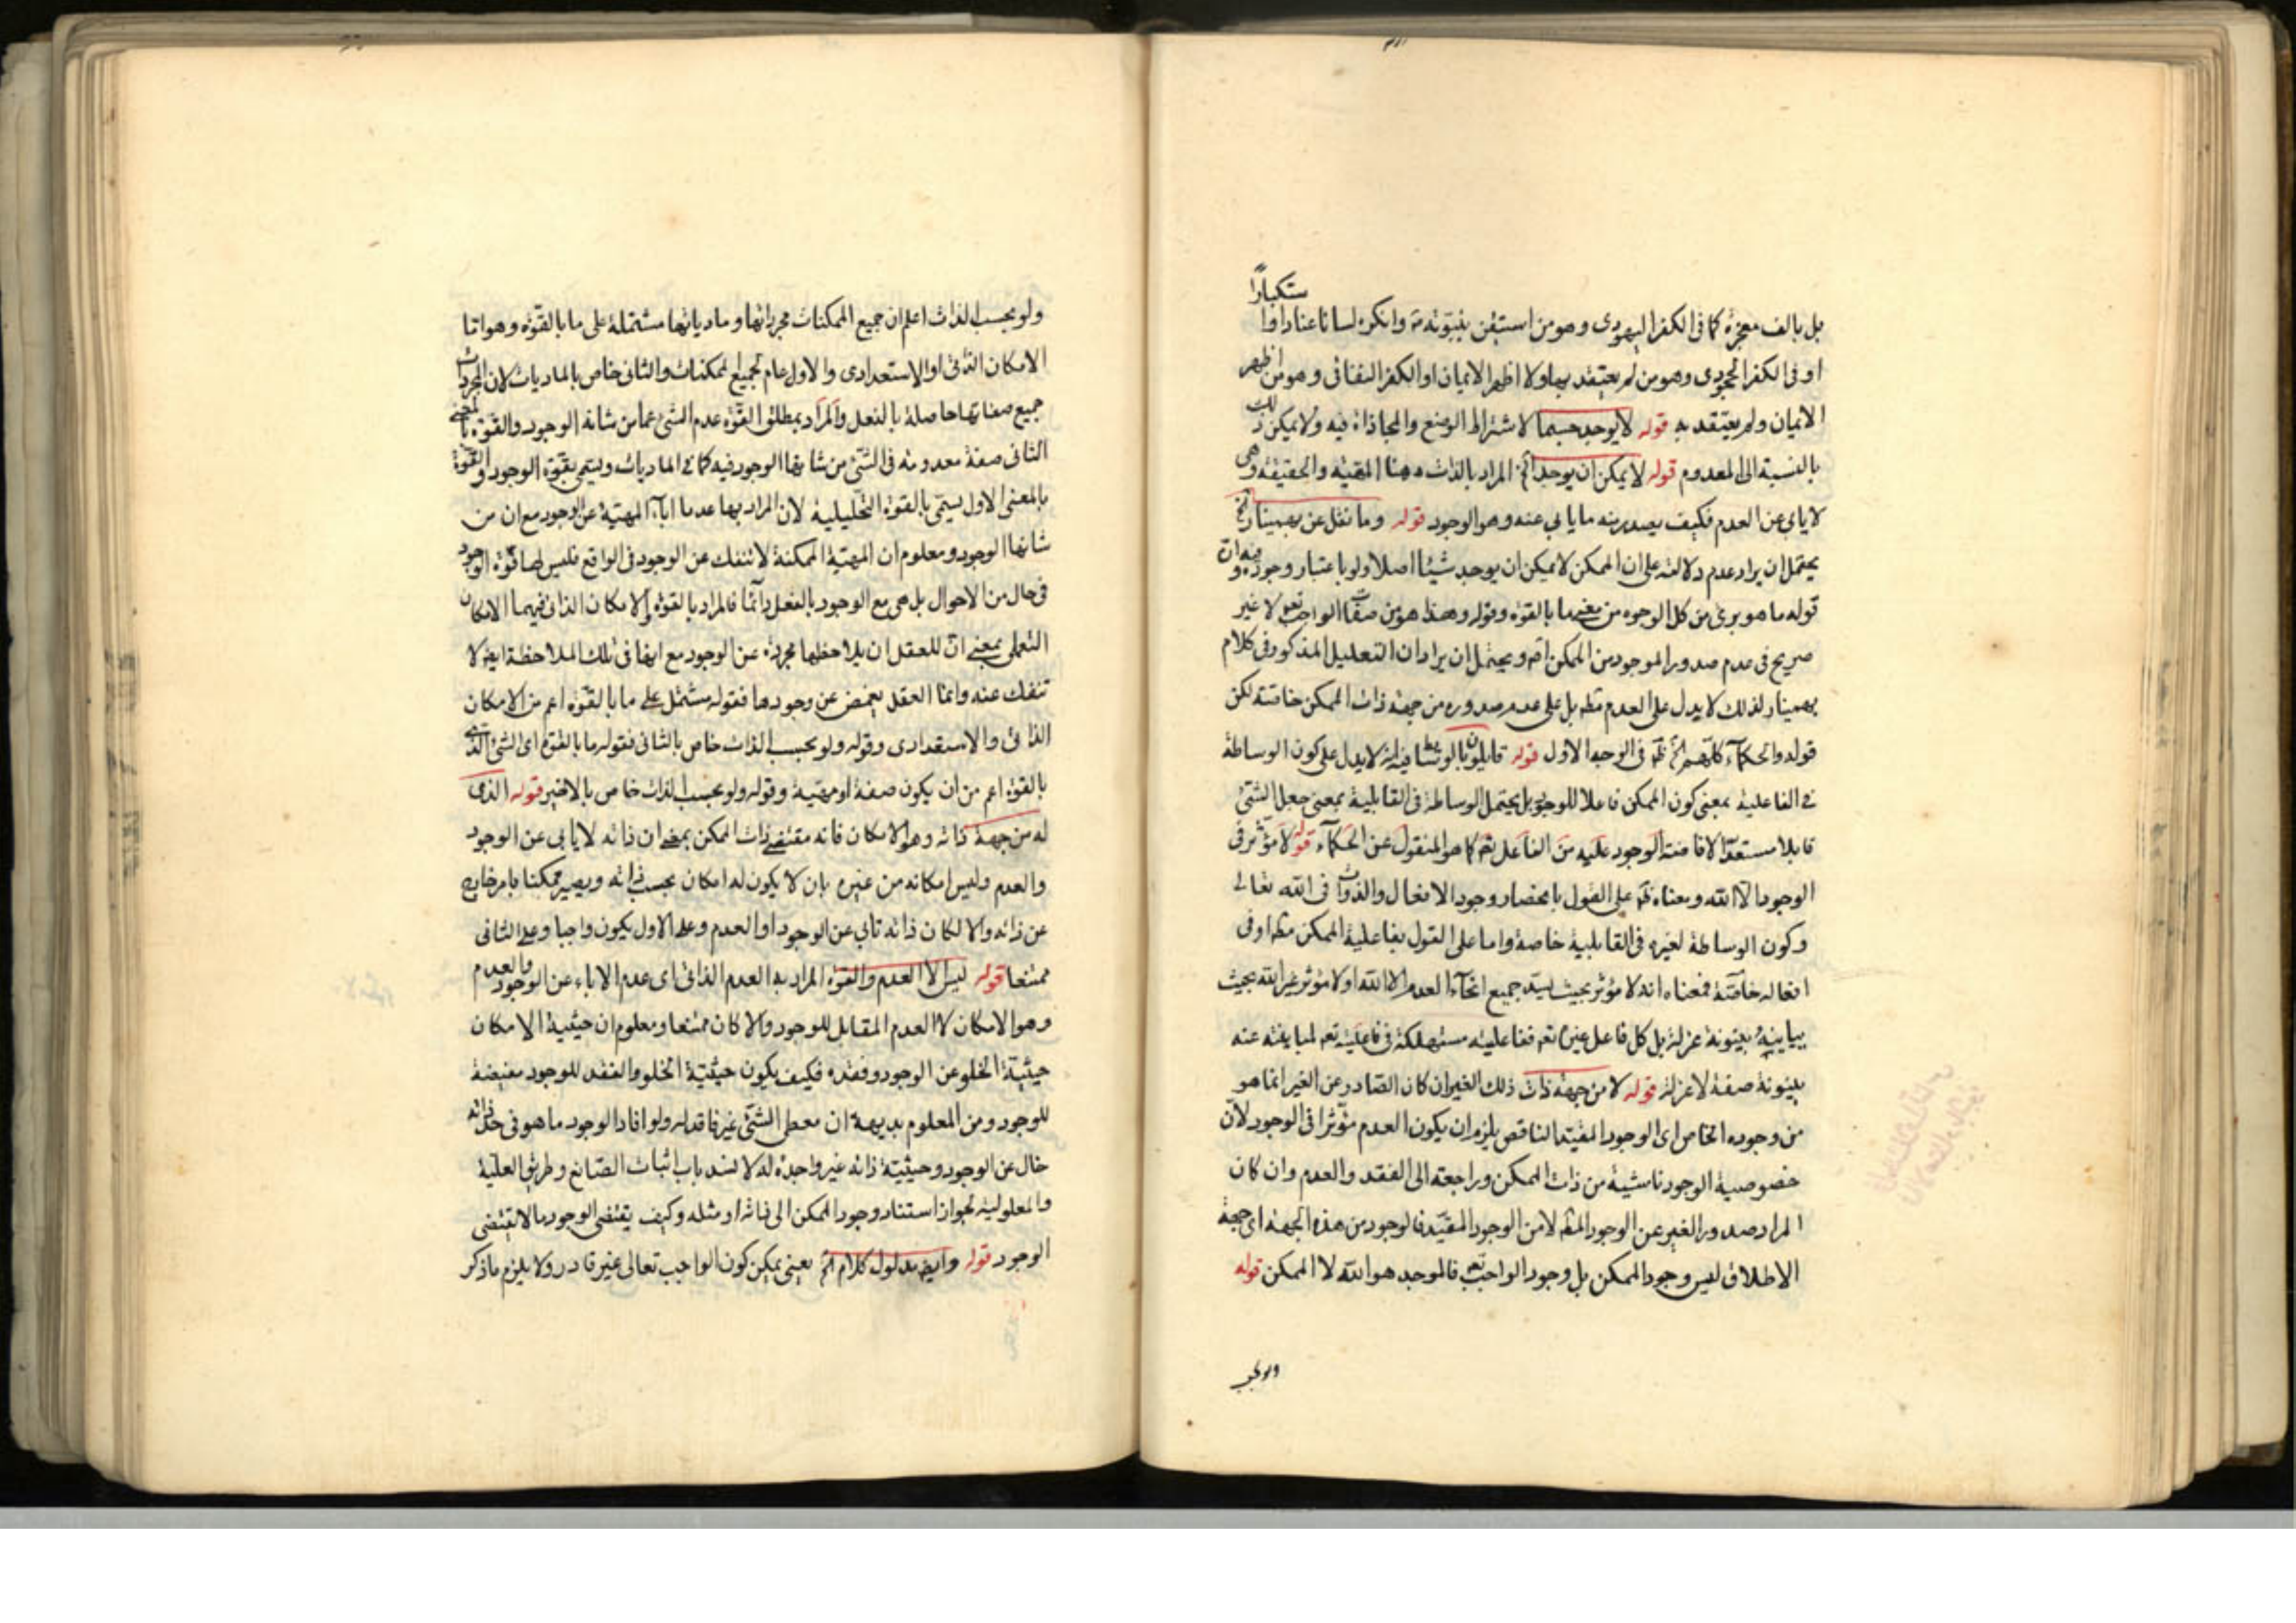 بل بالف معجزة كما فى الكفر اليهودى وهو من استيقن بنبوته وانكره لسانا عنادا او استكبارًا
او فى الكفر الجحودى وهو من لم يعتقد بها ولا اظهر الايمان او الكفر النفاقى وهو من اظهر
الايمان ولم يعتقد به قوله لا يوجد جسما لاشتراط الوضع والمحاذاة فيه ولا يمكن ذلك
بالنسبة الى المعدوم قوله لا يمكن ان يوجد الخ المراد بالذات ههنا المهية والحقيقة وهى
لا يابى عن العدم فكيف يصدر منه ما يابى عنه وهو الوجود قوله وما نقل عن بهمينار الخ
يحتمل ان يراد عدم دلالته على ان الممكن لا يمكن ان يوجد شيئا اصلا ولو باعتبار وجوده وان
قوله ما هو برئ من كل الوجوه من معنى ما بالقوة وقوله وهذا هو من صفات الواجب تعو لا غير
صريح فى عدم صدور الموجود من الممكن اصم ويحتمل ان يراد ان التعليل المذكور فى كلام
بهمينار لذلك لا يدل على العدم مطم بل على عدم صدوره من جهة ذات الممكن خاصة لكن
قوله والحكماء كلهم الخ ظم فى الوجه الاول قوله قايلون بالوسائط فيه انه لا يدل على كون الوساطة
فى الفاعلية بمعنى كون الممكن فاعلا للوجود بل يحتمل الوساطة فى القابلية بمعنى جعل الشئ
قابلا مستعدا لافاضة الوجود عليه من الفاعل تعم كما هو المنقول عن الحكماء قوله لا مؤثر فى
الوجود الا الله ومعناه ظم على القول بانحصار وجود الافعال والذوات فى الله تعالى
وكون الوساطة لغيره فى القابلية خاصة واما على القول بفاعلية الممكن مطم او فى
افعاله خاصة فمعناه انه لا مؤثر بحيث يسد جميع انحاء العدم الا الله او لا مؤثر غير الله بحيث
يباينه بينونة عزلة بل كل فاعل غيره تعم ففاعليته مستهلكة فى فاعليته تعم لمباينته عنه
بينونة صفة لا عزلة قوله لا من جهة ذات ذلك الغير ان كان الصادر عن الغير انما هو
من وجوده الخاص اى الوجود المقيد الناقص يلزم ان يكون العدم مؤثرا فى الوجود لان
خصوصية الوجود ناشية من ذات الممكن وراجعة الى الفقد والعدم وان كان
المراد صدور الغير عن الوجود المطم لا من الوجود المقيد فالوجود من هذه الجهة اى جهة
الاطلاق ليس وجود الممكن بل وجود الواجب تعم فالموجد هو الله لا الممكن قوله
ولو بحسب
ولو بحسب الذات اعلم ان جميع الممكنات مجرداتها ومادياتها مشتملة على ما بالقوة وهو اما
الامكان الذاتى او الاستعدادى والاول عام لجميع الممكنات والثانى خاص بالماديات لان المجردات
جميع صفاتها حاصلة بالفعل والمراد بمطلق القوة عدم الشئ عما من شانه الوجود والقوة بالمعنى
الثانى صفة معدومة فى الشئ من شانها الوجود فيه كما فى الماديات ويسمى بقوة الوجود والقوة
بالمعنى الاول يسمى بالقوة التحليلية لان المراد بها عدم اباء المهية عن الوجود مع ان من
شانها الوجود ومعلوم ان المهية الممكنة لا تنفك عن الوجود فى الواقع فليس لها قوة الوجود
فى حال من الاحوال بل هى مع الوجود بالفعل دائما فالمراد بالقوة والامكان الذاتى فيهما الامكان
التعملى بمعنى ان للعقل ان يلاحظها مجردة عن الوجود مع انها فى تلك الملاحظة ايضم لا
تنفك عنه وانما العقل يغمض عن وجودها فقوله مشتمل على ما بالقوة اعم من الامكان
الذاتى والاستعدادى وقوله ولو بحسب الذات خاص بالثانى فقوله ما بالقوة اى الشئ الذى
بالقوة اعم من ان يكون صفة او مهية وقوله ولو بحسب الذات خاص بالاخير قوله الذى
له من جهة ذاته وهو الامكان فانه مقتضى ذات الممكن بمعنى ان ذاته لا يابى عن الوجود
والعدم وليس امكانه من غيره بان لا يكون له امكان بحسب ذاته ويصير ممكنا بامر خارج
عن ذاته والا لكان ذاته تابى عن الوجود او العدم وعلى الاول يكون واجبا وعلى الثانى
ممتنعا قوله ليس الا العدم والقوة المراد به العدم الذاتى اى عدم الاباء عن الوجود والعدم
وهو الامكان لا العدم المقابل للوجود والا كان ممتنعا ومعلوم ان حيثية الامكان
حيثية الخلو عن الوجود وفقده فكيف يكون حيثية الخلو والفقد للوجود مفيضة
للوجود ومن المعلوم بديهة ان معطى الشئ غير فاقد له ولو افاد الوجود ما هو فى حد ذاته
خال عن الوجود وحيثية ذاته غير واجدة له لانسد باب اثبات الصانع وطريق العلية
والمعلولية لجواز استناد وجود الممكن الى ذاته او مثله وكيف يقتضى الوجود ما لا يقتضى
الوجود قوله وايضم مدلول كلام الخ يعنى يمكن كون الواجب تعالى غير قادر ولا يلزم ما ذكر